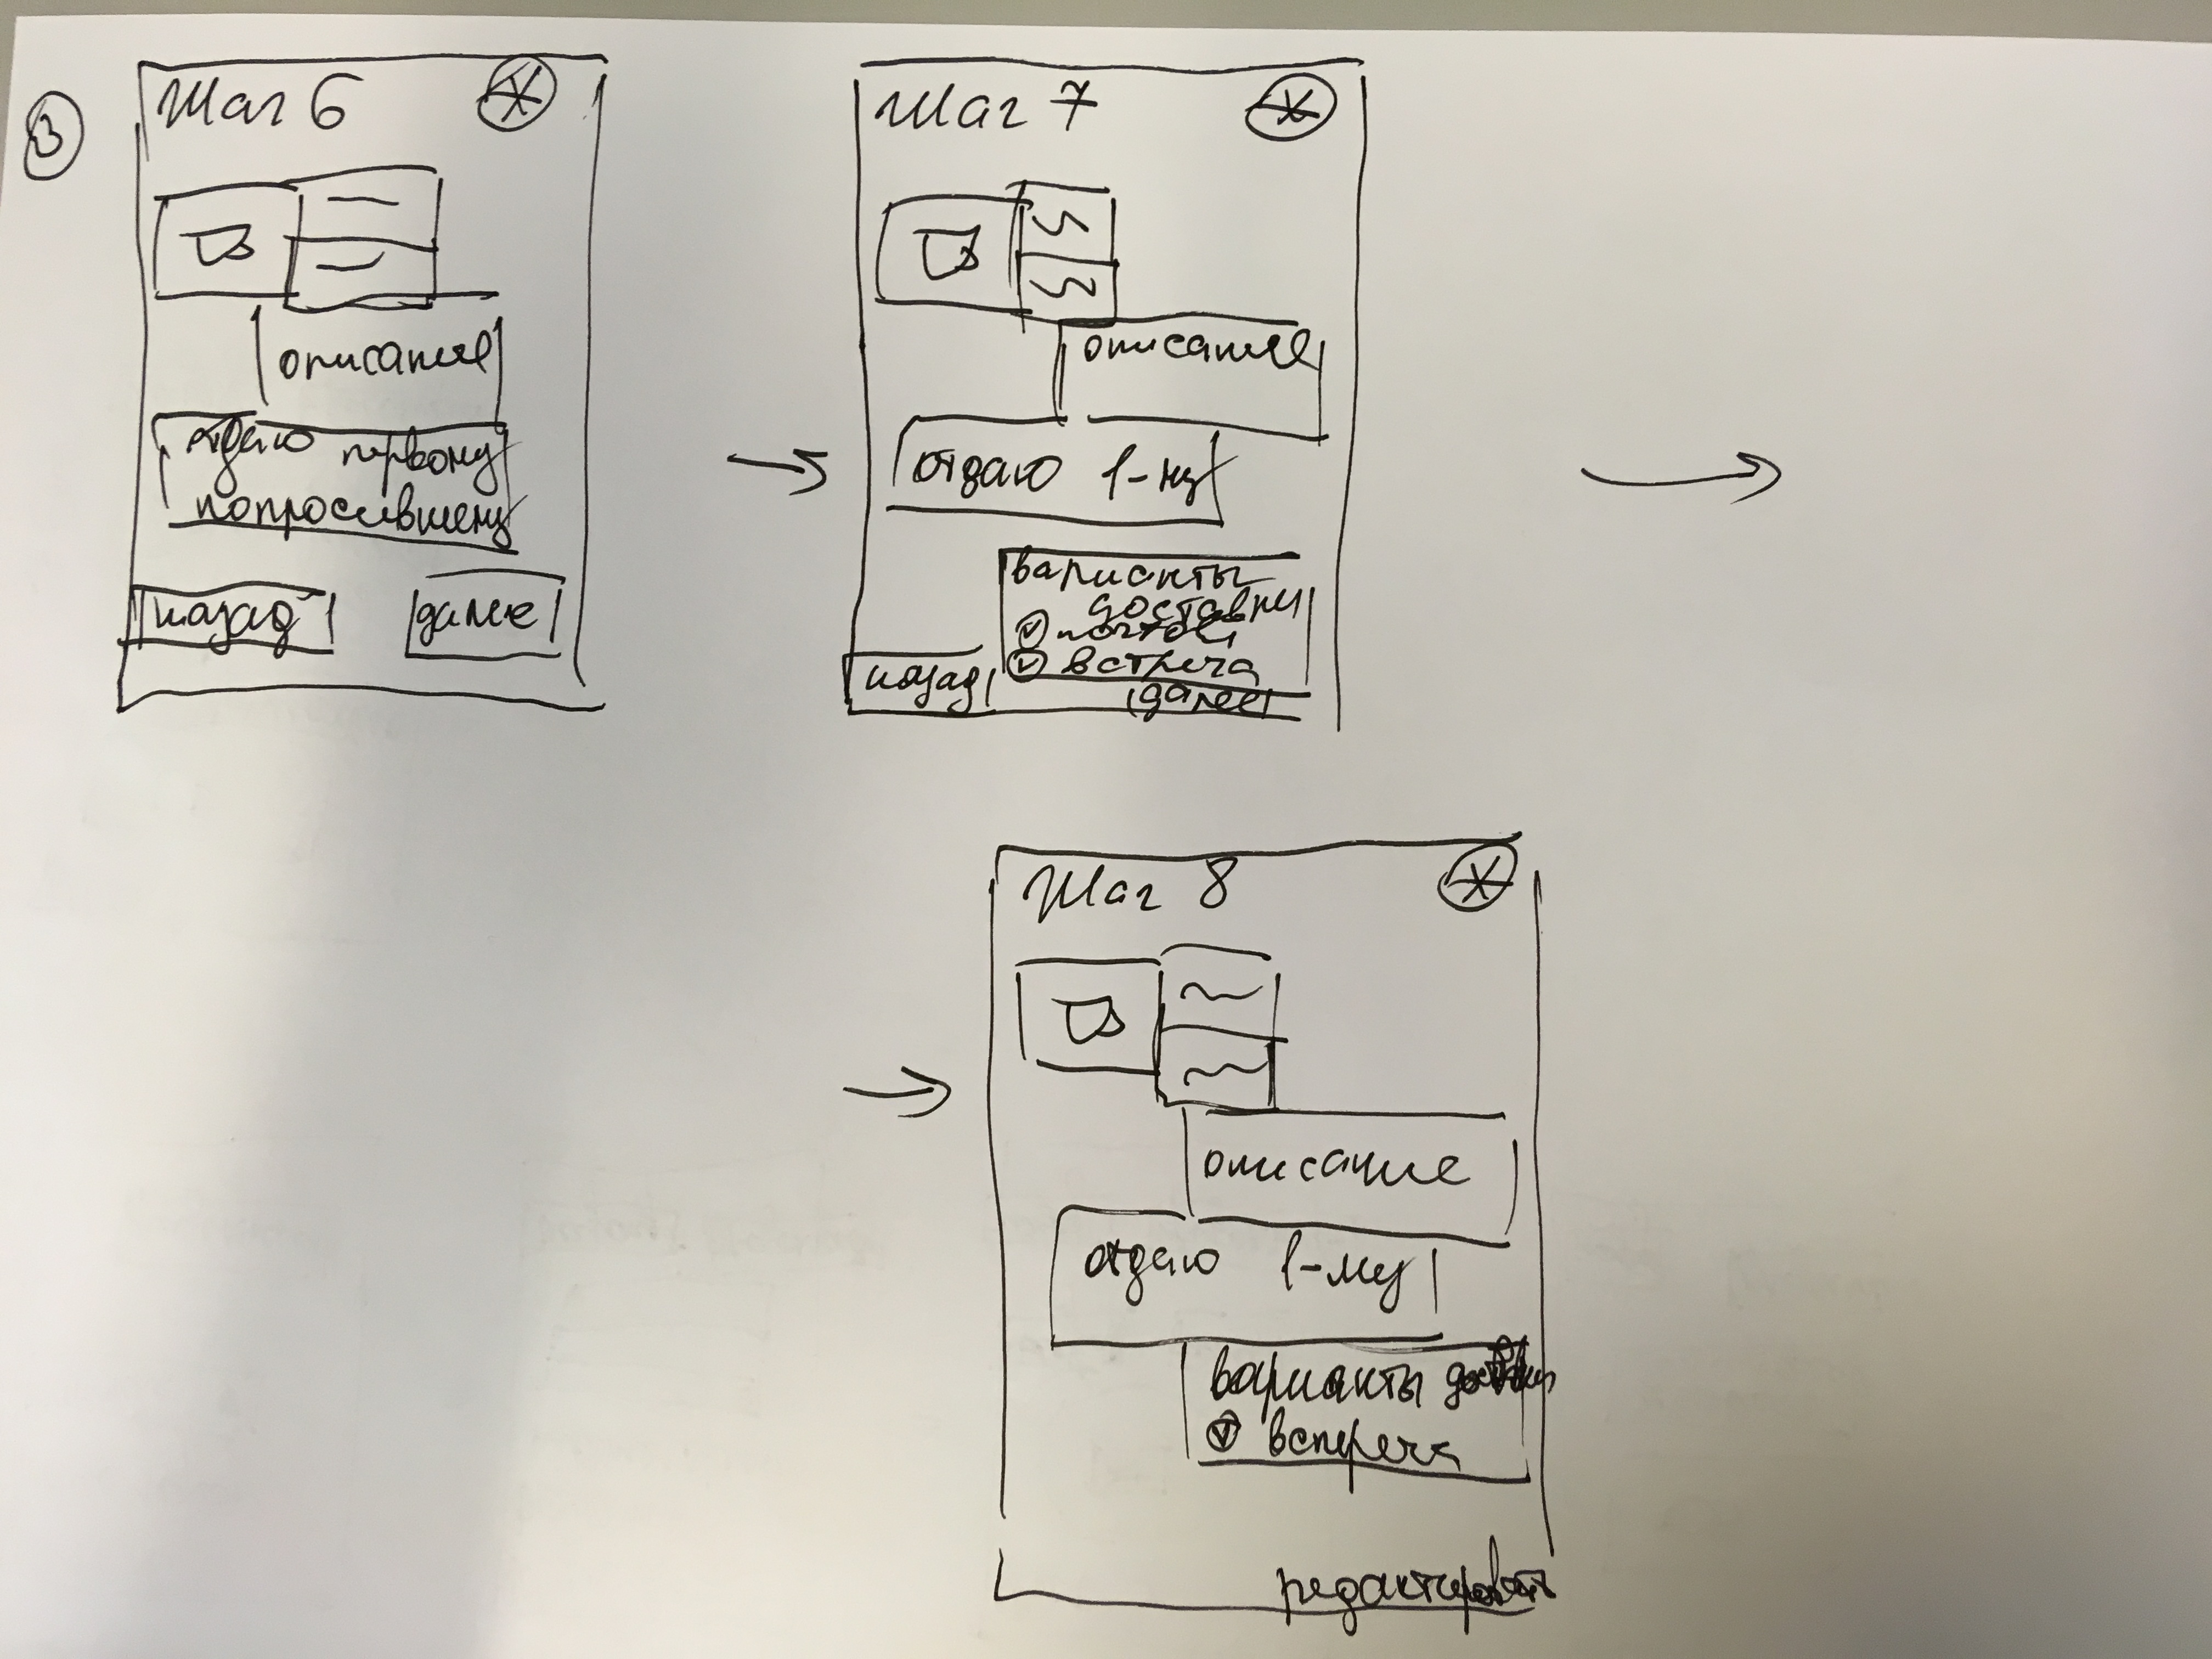 3
Шаг 6
X
описание
отдаю первому
попросившему
назад
далее
Шаг 7
X
описание
отдаю 1-му
варианты
доставки
почтой
встреча
назад
далее
Шаг 8
X
описание
отдаю 1-му
варианты доставки
встреча
редактировать